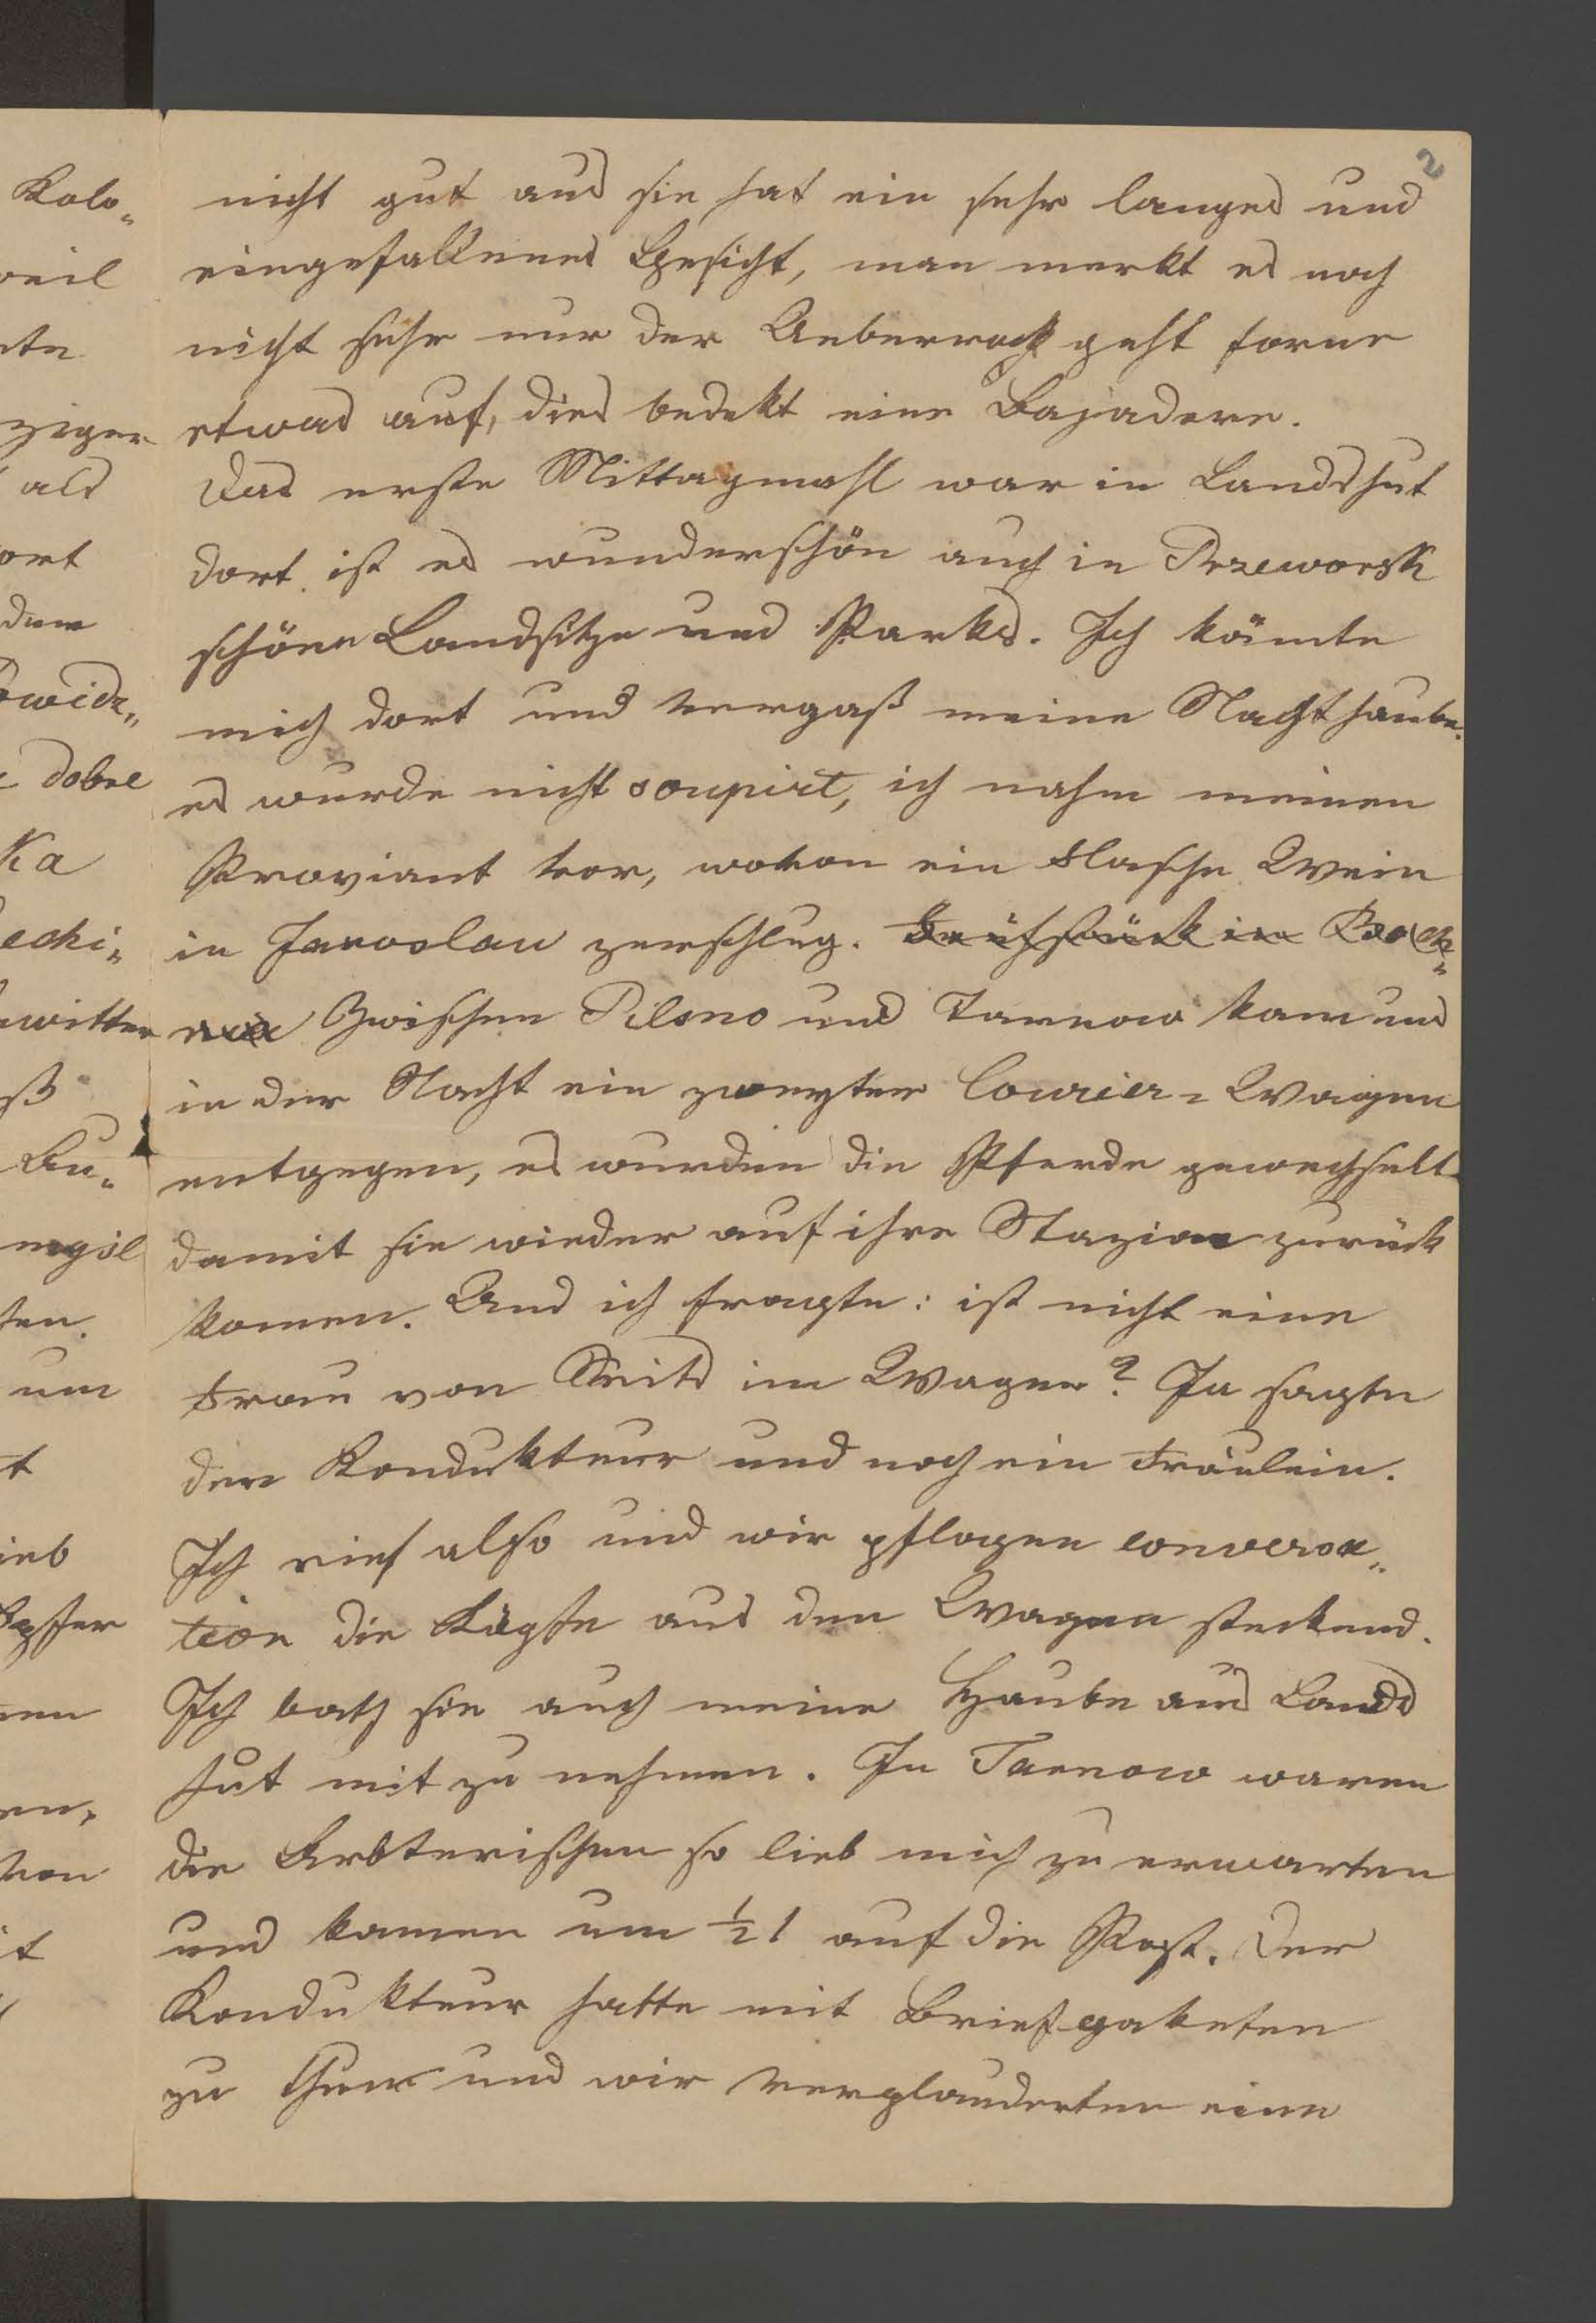 2
nicht gut aus sie hat ein sehr langes und
eingefallenes Gesicht, man merkt es noch
nicht sehr nur der Ueberrock geht forne
etwas auf, dies bedekt eine Bajadere.
Das erste Mittagmahl war in Landshut
dort ist es wunderschön auch in Przeworsk
schöne Landsitze und Parks. Ich kämte
mich dort und vergaß meine Nachthaube.
es wurde nicht soupirt, ich nahm meinen
Proviant vor, wovon ein Flasche Wein
in Jaroslau zerschlug. Frühstück in Boch-
nia Zwischen Pilsno und Tarnow kam uns
in der Nacht ein zweyter Courier-Wagen
entgegen, es wurden die Pferde gewechselt
damit sie wieder auf ihre Stazion zurück
komen. Und ich fragte: ist nicht eine
Frau von in Wagen? Ja sagte
der Kondukteur und noch ein Fräulein.
Ich rief also und wir pflogen conversa-
tion die Köpfe aus den Wagen steckend.
Ich bath sie auch meine Haube aus Lands
hut mit zu nehmen. In Tarnow waren
die so lieb mich zu erwarten
und kamen um ½ 1 auf die Post. Der
Kondukteur hatte mit Briefpaketen
zu thun und wir verplauderten eine
Kolo-
weil
ziger
als
ort
dem
dobre
ka
echi-
ß
ten.
um